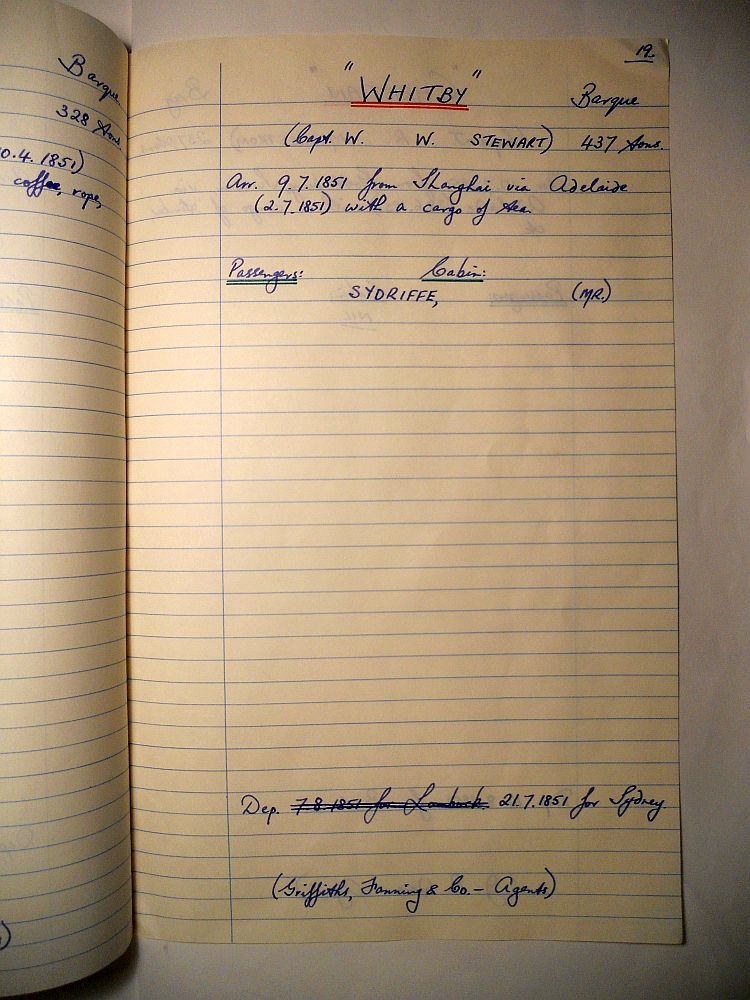 Barque
328 tons.
0.4.1851)
coffee, rope,
19.
"WHITBY"
Barque
(Capt. W. W. STEWART) 437 tons.
Arr. 9.7.1851 from Shanghai via Adelaide
(2.7.1851) with a cargo of tea.
Passengers: Cabin:
SYDRIFFE, (MR.)
Dep. 7.8.1851 for Lombock. 21.7.1851 for Sydney
(Griffiths, Fanning & Co. – Agents)